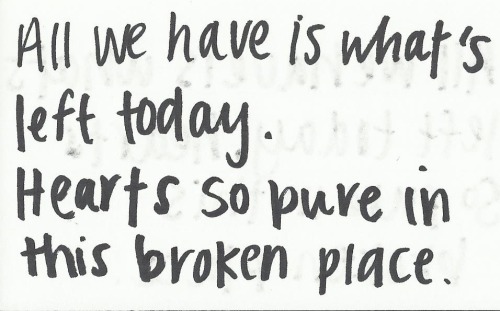 All we have is what's
left today.
Hearts so pure in
this broken place.